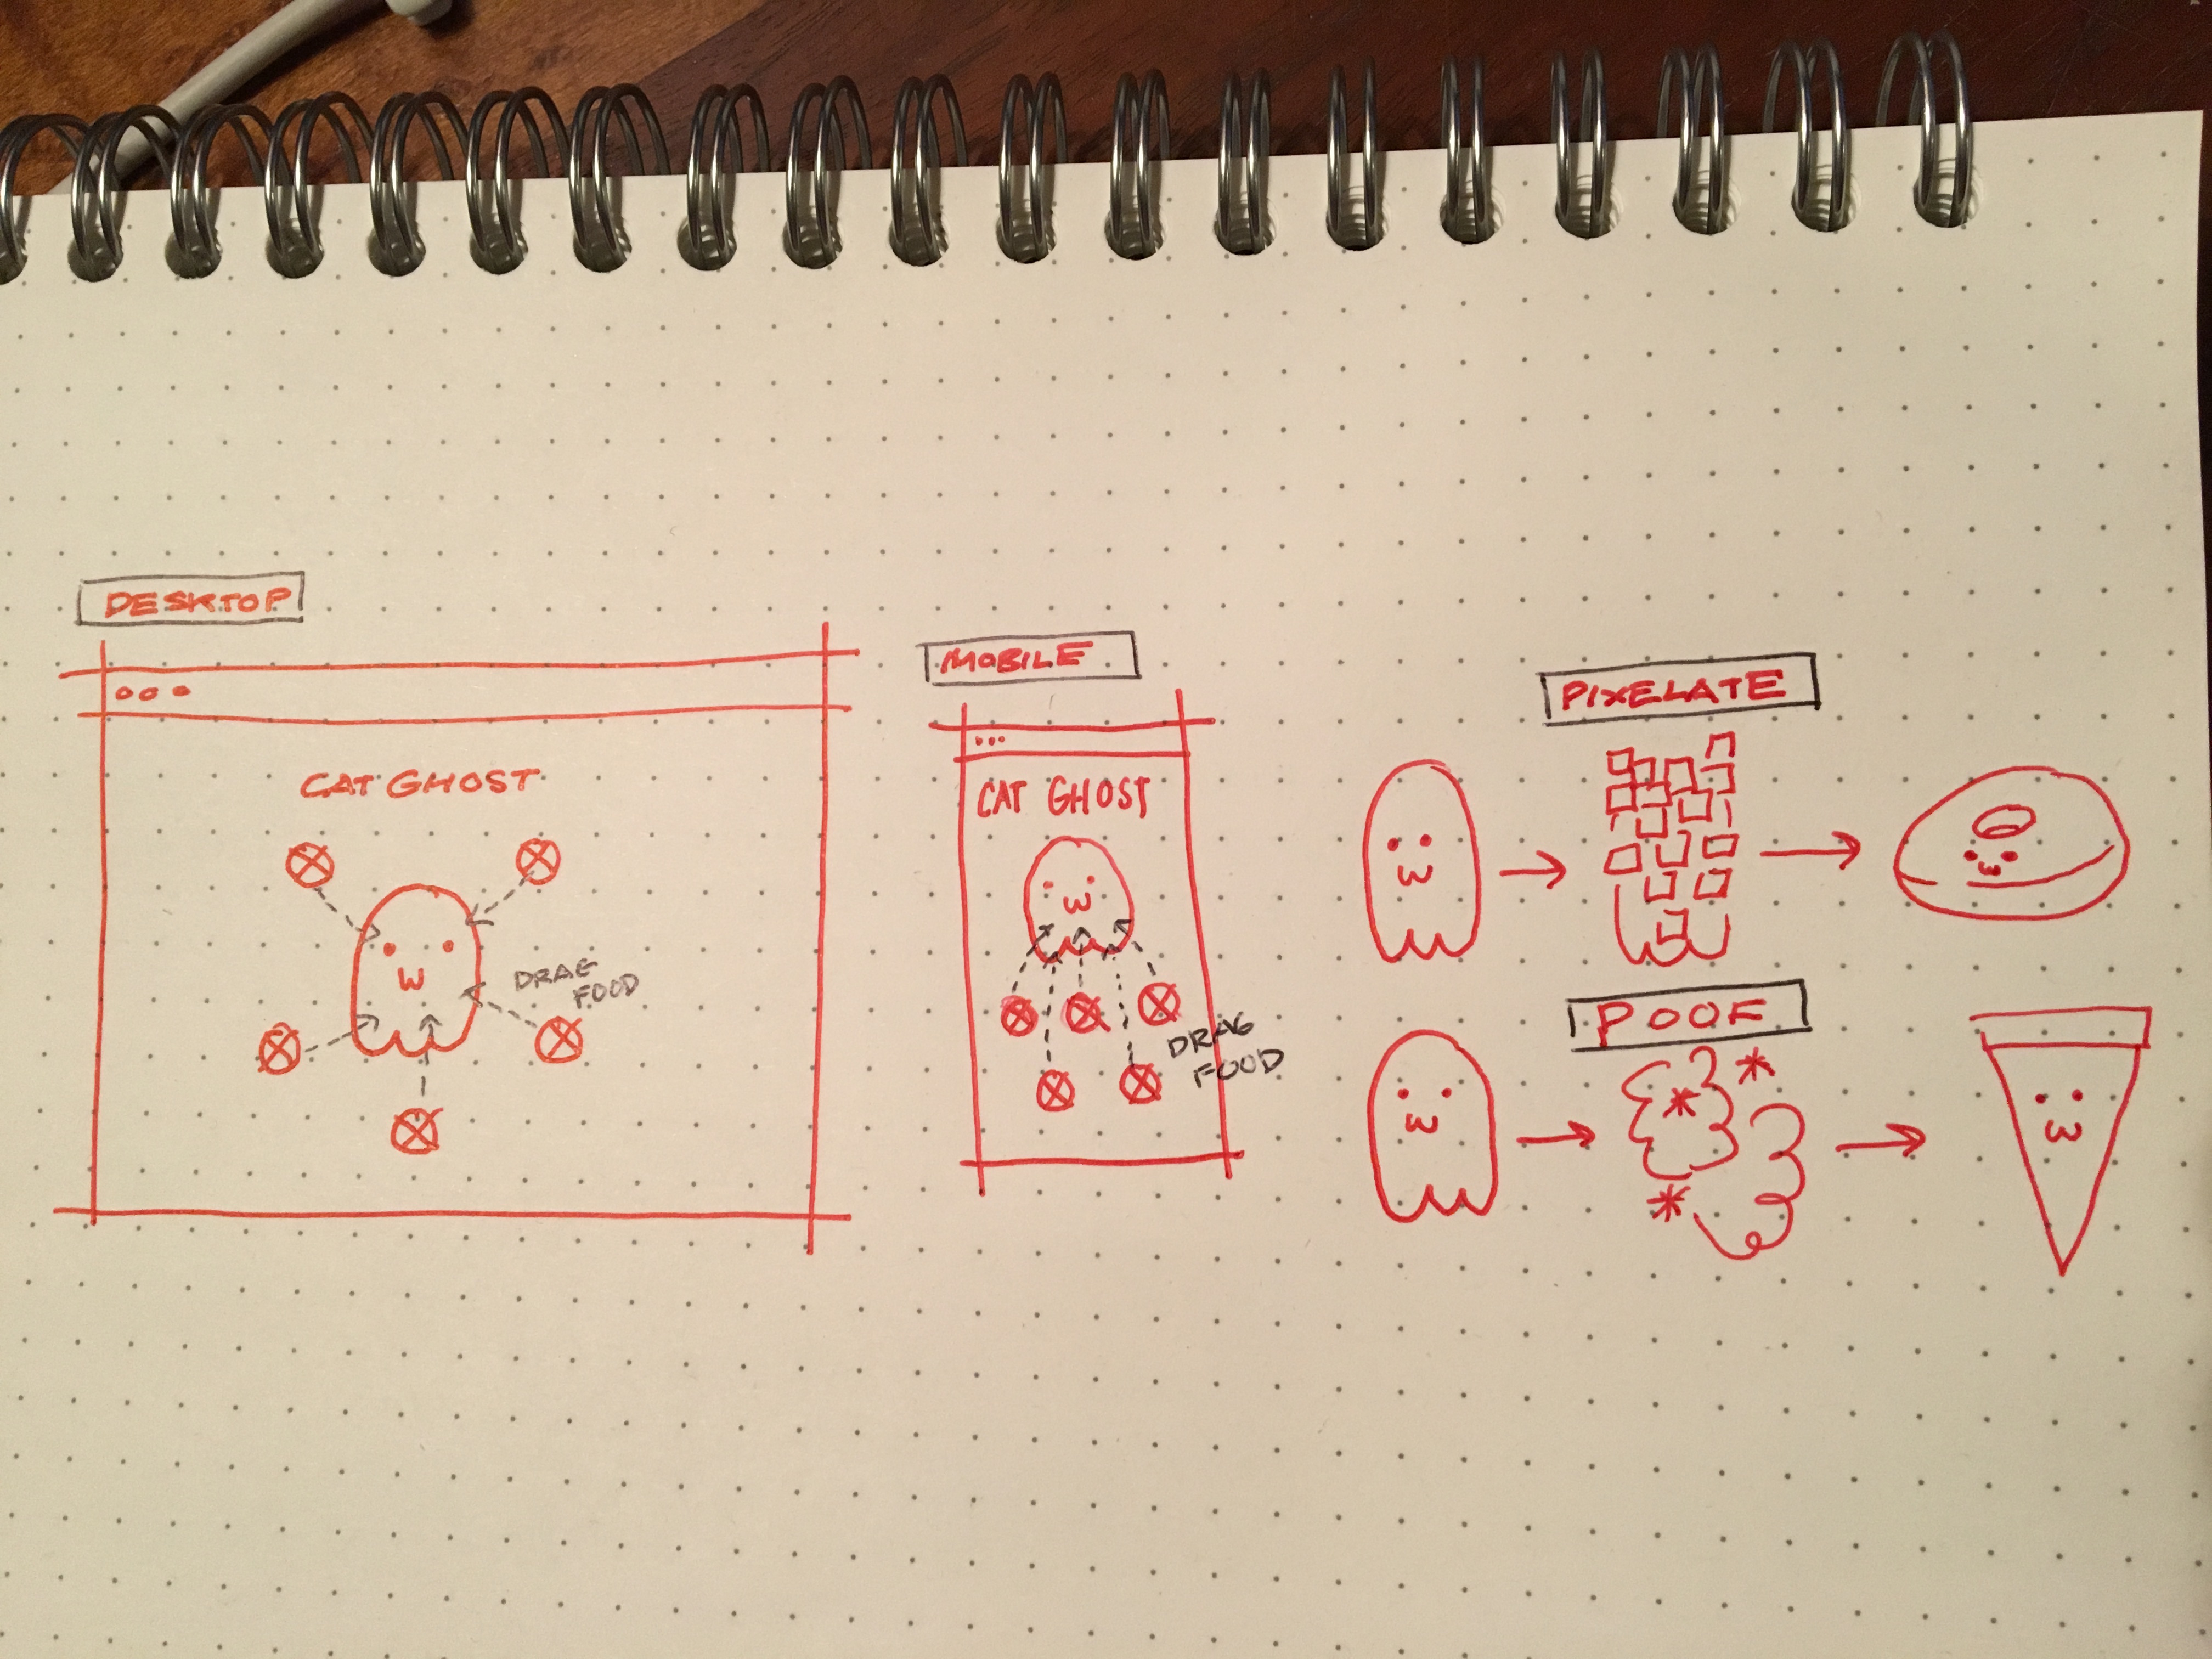 DESKTOP
CAT GHOST
DRAG
FOOD
MOBILE
CAT GHOST
DRAG
FOOD
PIXELATE
POOF